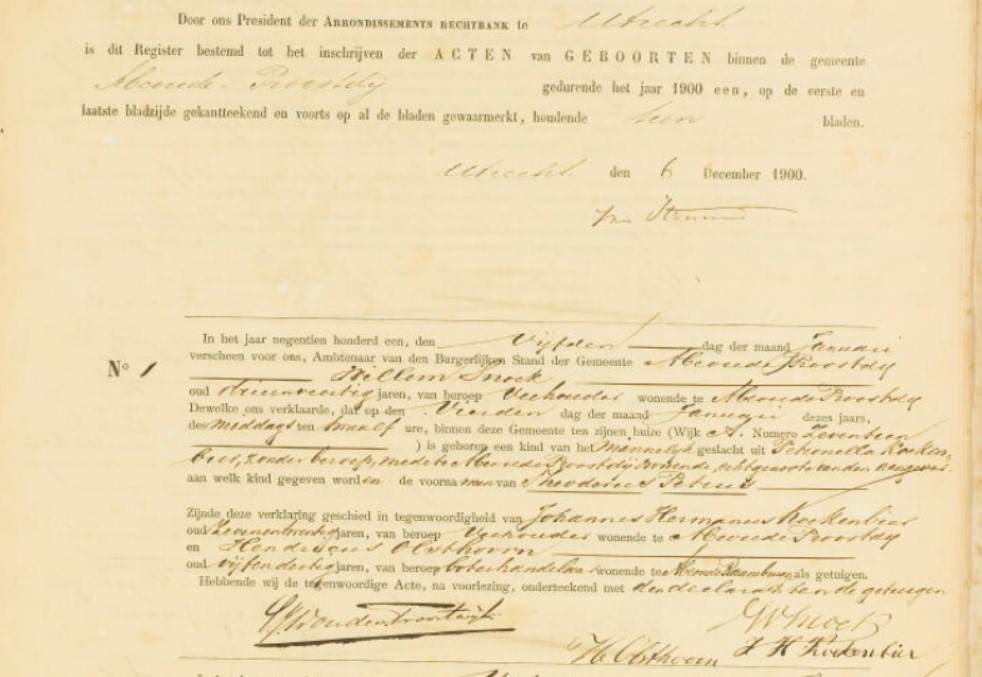 Door ons President der ARRONDISSEMENTS RECHTBANK te Utrecht
is dit Register bestemd tot het inschrijven der ACTEN van GEBOORTEN binnen de gemeente
Abcoude-Proostdij gedurende het jaar 1900 een, op de eerste en
laatste bladzijde gekantteekend en voorts op al de bladen gewaarmerkt, houdende bladen.
Utrecht den 6 December 1900.
In het jaar negentien honderd een, den Vijfden dag der maand Januari
verscheen voor ons, Ambtenaar van den Burgerlijken Stand der Gemeente Abcoude Proostdij
No 1
Willem Snoek
oud drieenveertig jaren, van beroep Veehouder wonende te Abcoude Proostdij
Dewelke ons verklaarde, dat op den Vierden dag der maand Januari dezes jaars,
des middags ten twaalf ure, binnen deze Gemeente ten zijnen huize (Wijk A. Numero Zeventien
) is geboren een kind van het Mannelijk geslacht uit Petronella Koeken-
bier, zonder beroep, mede te Abcoude Proostdij wonende, echtgenoote van den aangever.
aan welk kind gegeven worden de voornamen van Theodorus Petrus
Zijnde deze verklaring geschied in tegenwoordigheid van Johannes Hermanus Koekenbier
oud Zevenentwintig jaren, van beroep Veehouder wonende te Abcoude Proostdij
en Hendricus Olsthoorn
oud vijfendertig jaren, van beroep boterhandelaar wonende te Abcoude Baambrugge als getuigen.
Hebbende wij de tegenwoordige Acte, na voorlezing, onderteekend met den declarant en de getuigen
W Snoek
H Olsthoorn J H Koekenbier